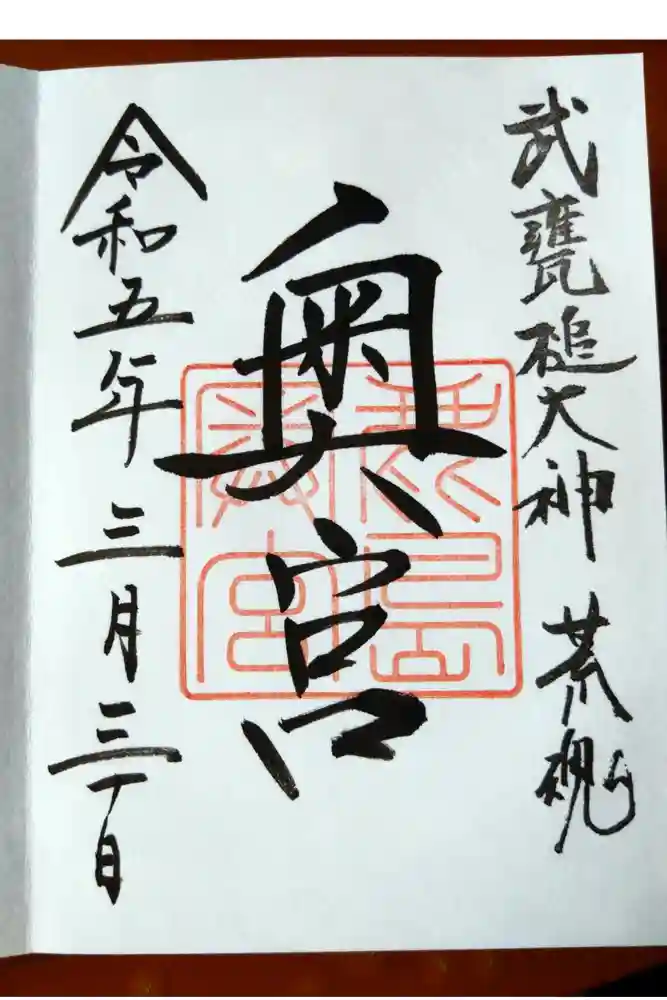 武甕槌大神 荒魂
奥宮
鹿島
奥宮
令和五年三月三十日